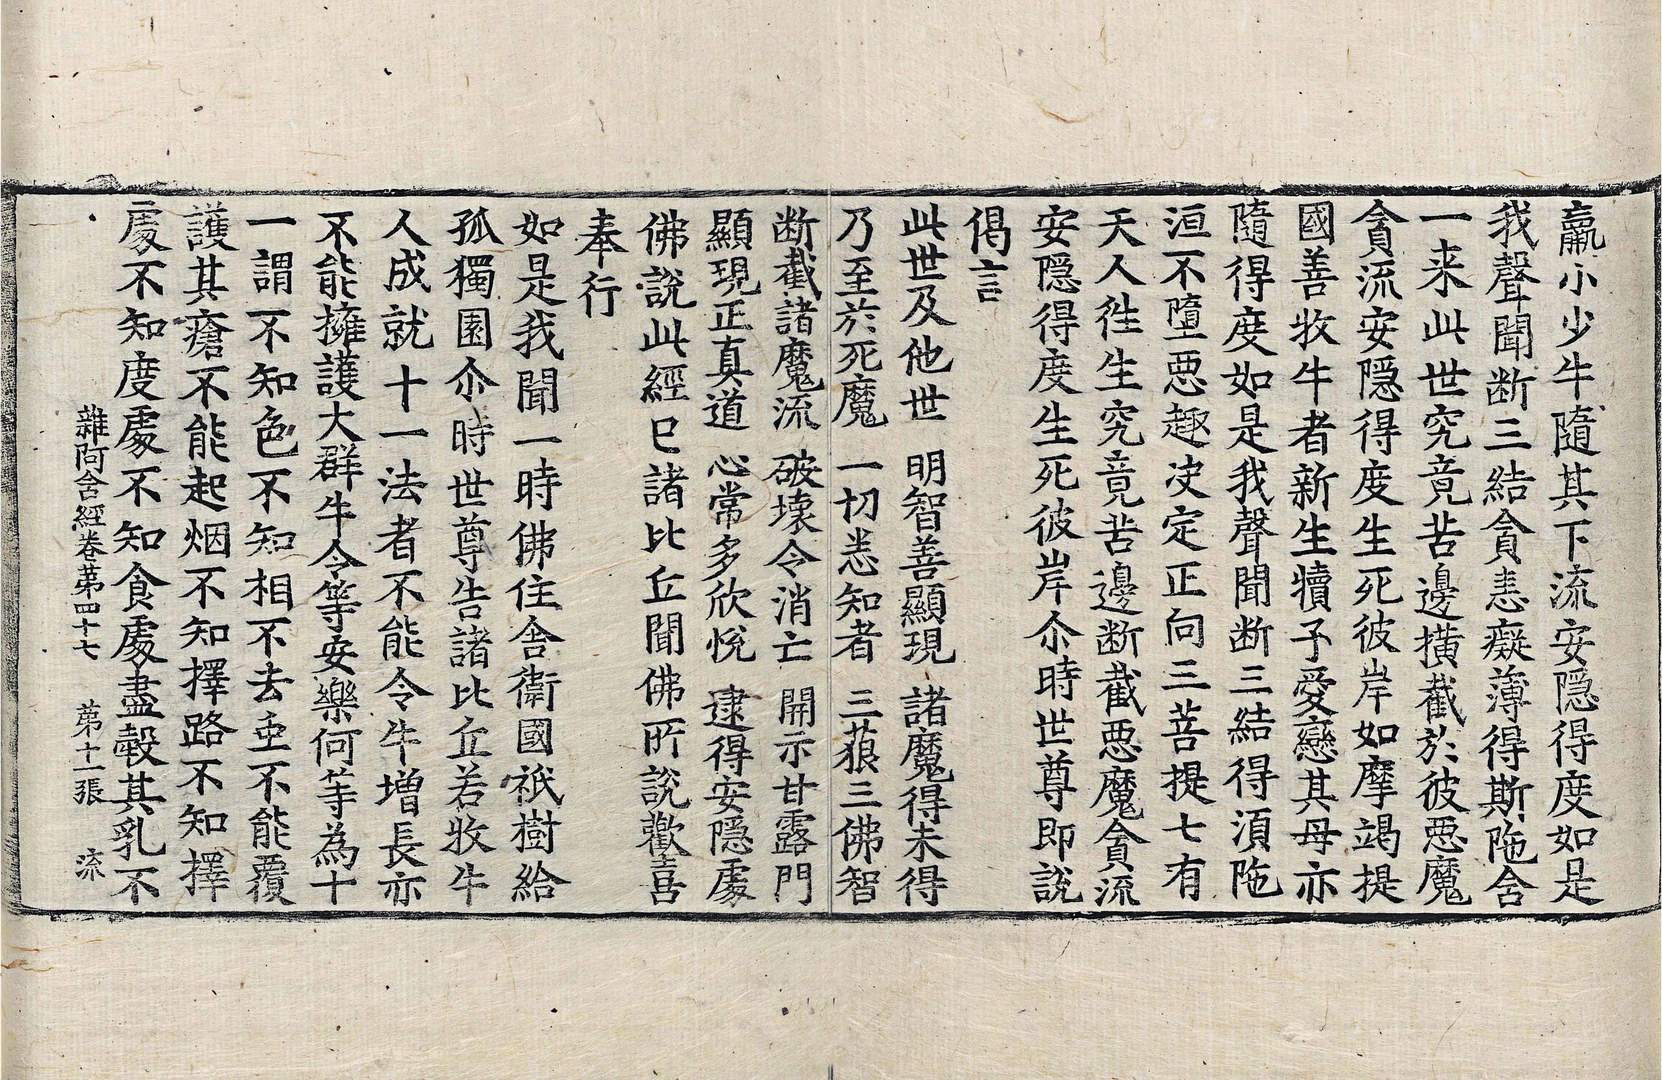 羸小少牛隨其下流安隱得度如是
我聲聞断三結貪恚癡薄得斯陁含
一来此世究竟苦邊撗截於彼惡魔
貪流安隱得度生死彼岸如摩竭提
國善牧牛者新生犢子愛戀其母亦
隨得度如是我聲聞断三結得湏陁
洹不墮惡趣决定正向三菩提七有
天人徃生究竟苦邊断截惡魔貪流
安隱得度生死彼岸尒時世尊即說
偈言
此世及他世 明智善顯現 諸魔得未得
乃至於死魔 一切悉知者 三藐三佛智
断截諸魔流 破壞令消亡 開示甘露門
顯現正真道 心常多欣悅 逮得安隱處
佛說此經已諸比丘聞佛所說歡喜
奉行
如是我聞一時佛住舍衛國祇樹給
孤獨園尒時世尊告諸比丘若牧牛
人成就十一法者不能令牛增長亦
不能擁護大群牛令等安樂何等為十
一謂不知色不知相不去虫不能覆
護其瘡不能起烟不知擇路不知擇
處不知度處不知食處盡㲉其乳不
雜阿含經卷苐四十七 苐十一張 流